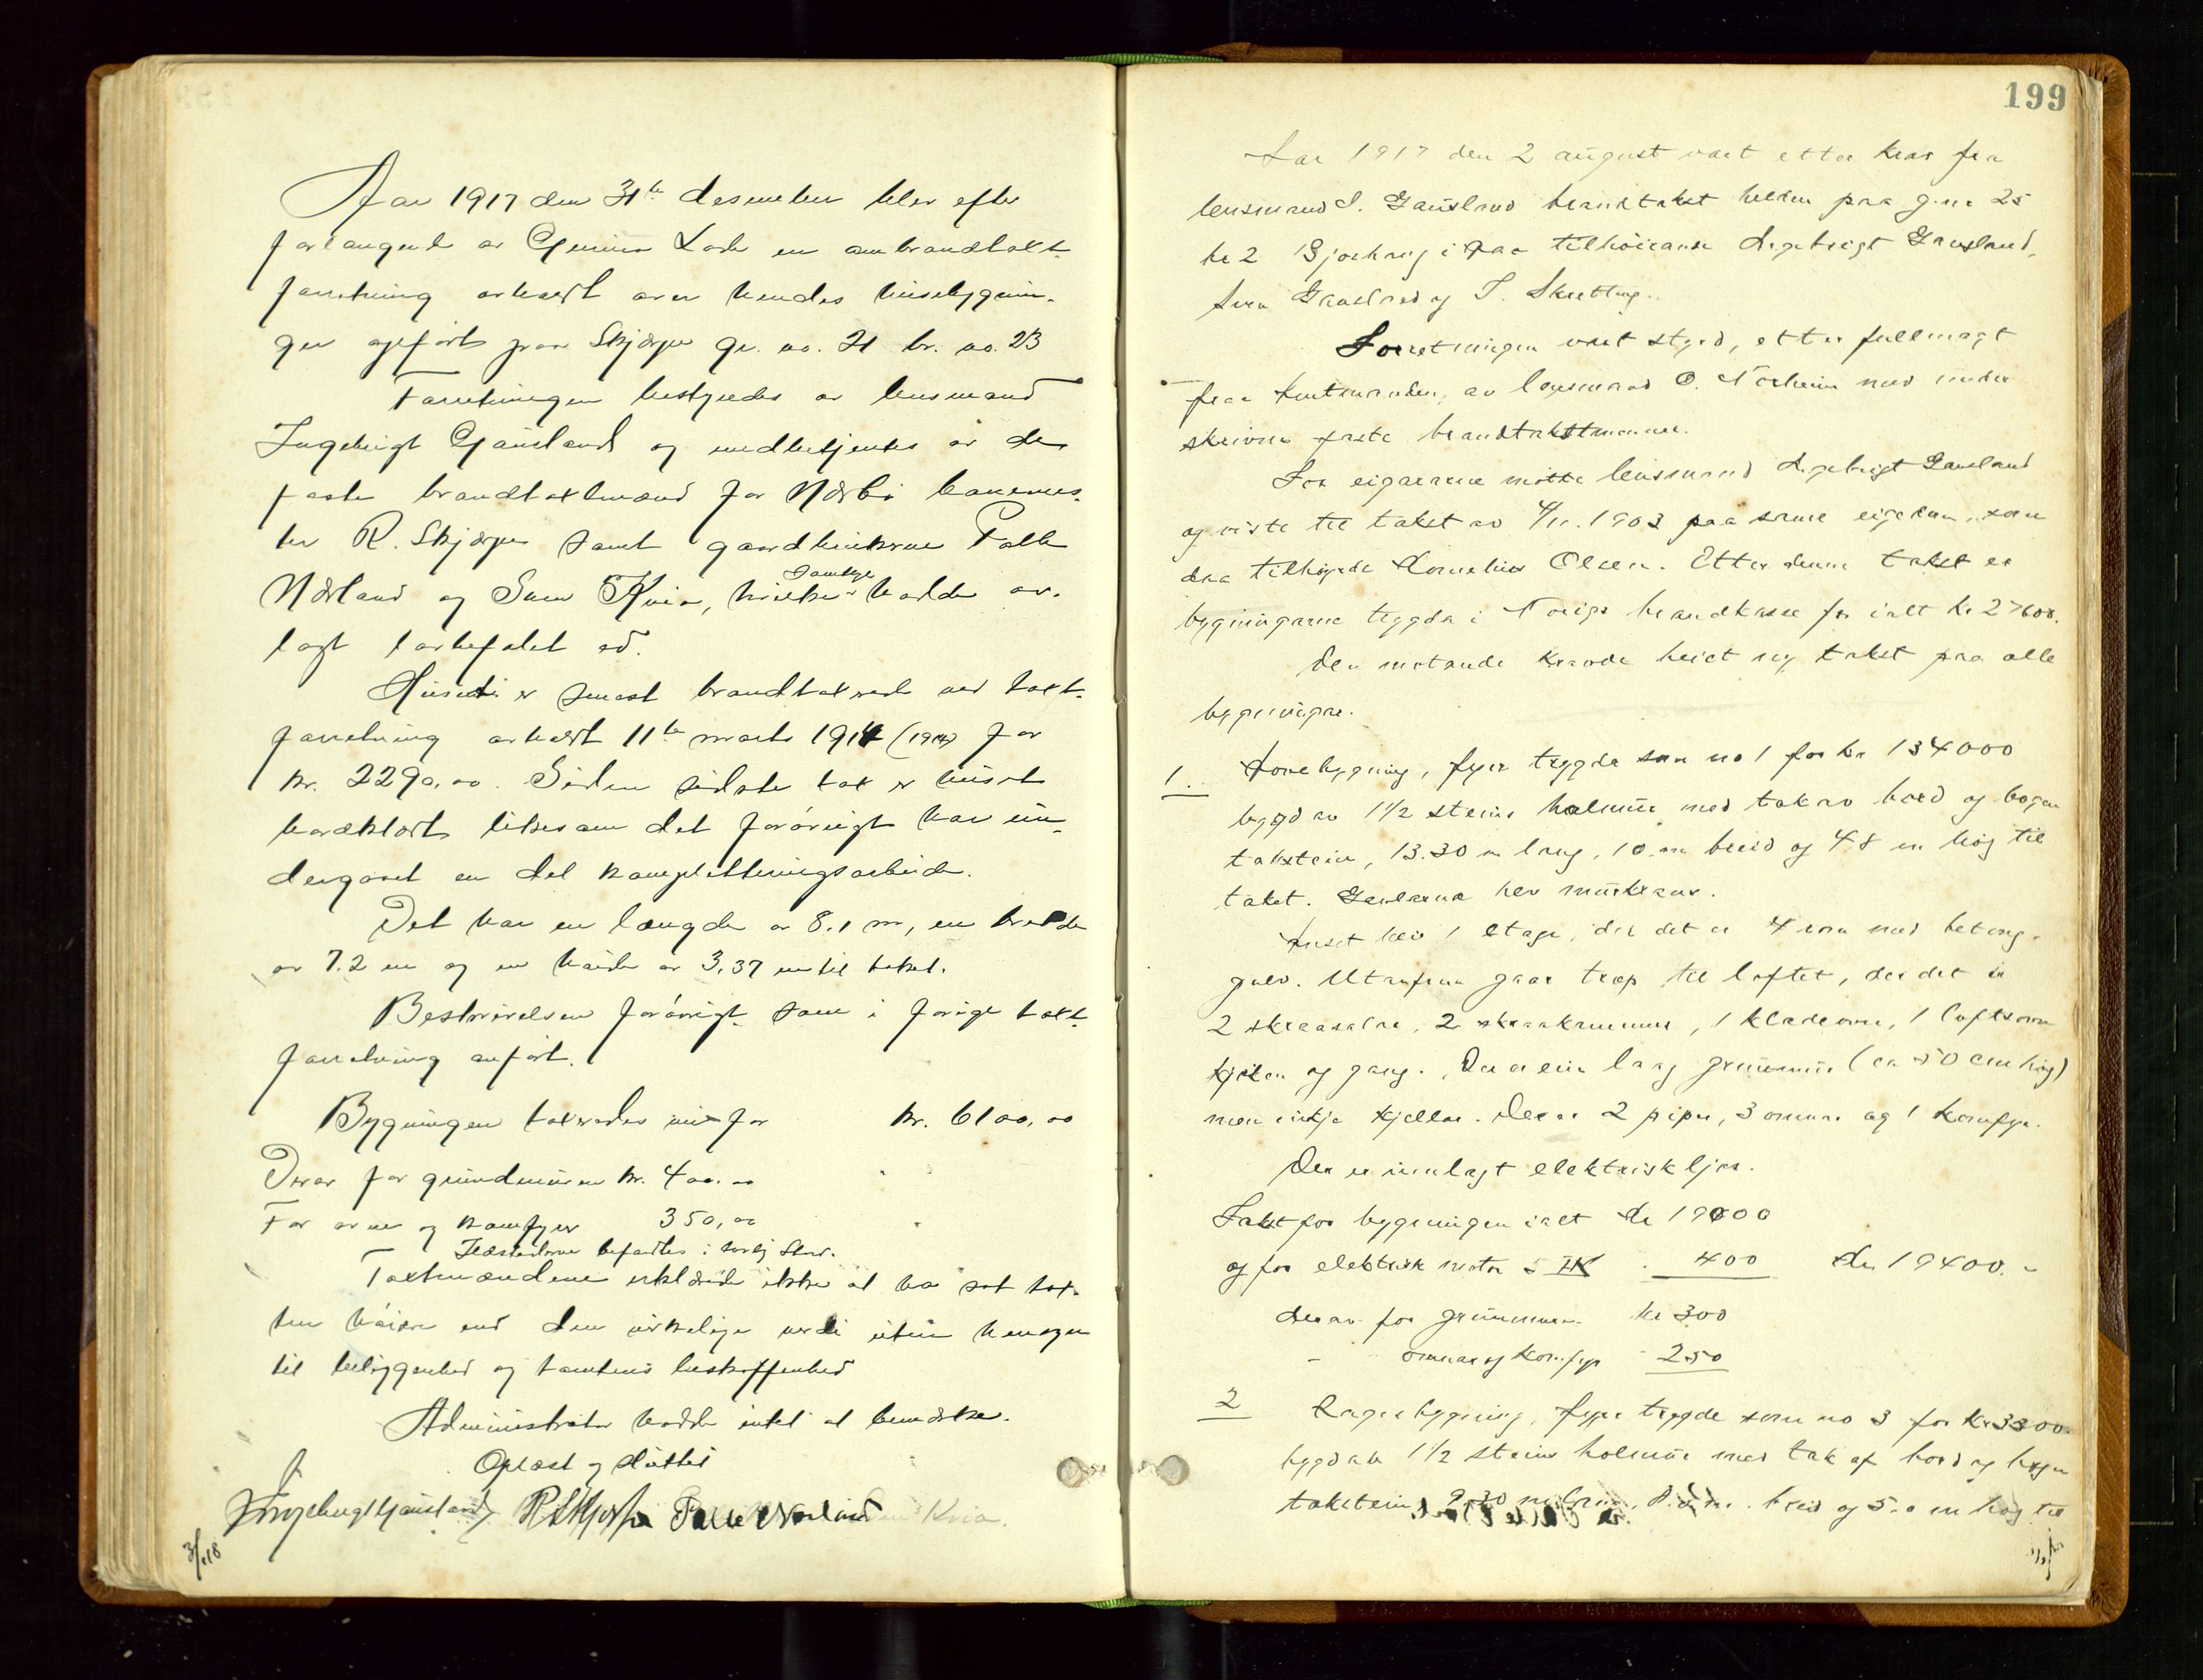 Aar 1917 den 31te desember blev efter
forlangende av Gunna Lode en ombrandtaxt-
forretning avholdt over hendes husebygnin-
ger opført paa Skjærpe gr. no. 21 br. no. 23
Forretningen bestyredes av lensmand
Ingebrigt Gausland og medbetjentes av de
faste brandtaxtmænd for Nærbø
R. Skjærpe samt gaardbrukerne Falle
Nærland og Sven Kvia, hvilke samtlige hadde av-
lagt lovbefalet ed.
Huset er senest brandtaxeret ved taxt-
forretning avholdt 11te marts 1914 (1914) for
kr. 2290,00. Siden sidste taxt er huset
bordklædt likesom det forøvrigt har un-
dergaaet en del kompletteringsarbeide.
Det har en længde av 8.1 m, en bredde
av 7.2 m og en høide av 3,37 m til taket.
Beskrivelsen forøvrigt som i forrige taxt-
forretning anført.
Bygningen taxeredes nu for kr. 6100,00
Derav for grundmuren kr. 400.00
For ovne og komfyrer 350,00
Ildstederne befandtes i lovlig Stand.
Taxtmændene erklærede ikke at ha sat tax-
ten høiere end den virkelige verdi uten hensyn
til beliggenhed og tomtens beskaffenhed
Administrator hadde intet at bemærke.
Oplæst og sluttet
Ingebrigt Gausland R Skjærpe Falle Nærland Sven Kvia.
3/1 18
199
Aar 1917 den 2 august vart etter krav fra
lensmand I. Gausland brandtakst halden paa g.nr 25
br 2 Bjorhaug i Haa tilhøirande Ingebrigt Gausland,
Sven Gausland og T. Skretting.
Forretningen vart styrd, etter fullmagt
fraa Amtmanden, av lensmand O. Norheim med under
skrivne faste brandtakstmenner.
For eigararne møtte lensmand Ingebrigt Gausland
og viste til takst av 4/11. 1903 paa same eigedom, som
daa tilhøyrde Kornelius Olsen. Etter denne takst er
bygningarne tryggda i Norigs brandkasse for ialt kr 27600.
Den møtande kravde heict ny takst paa alle
bygningar.
1. Hovebygning, fyrr tryggda som no 1 for kr 134000
byggd av 1 1/2 steins holmur med tak av bord og bogen
takstein, 13.30 m lang, 10 m breid og 4.8 m høg til
taket. Gavlarna hev murkrans.
Huset hev 1 etage, der det er 4 rom med betong-
gulv. Utanfraa gaar trap til loftet, der det er
2 skraasalar, 2 skraakammer, 1 kladerom, 1 loftsrom
kjøken og gang. Der er ein laag grunnmur (ca 50 cm høg)
men inkje kjellar. Der er 2 pipar, 3 omnar og 1 komfyr.
Der er innlagt elektrisk ljos.
Takst for bygningen ialt kr 19000
og for elektrisk motor 5 HK . 400 kr 19400.-
derav for grunnmuren kr 300
- omnar og komfyr 250
2 Lagerbygning, fyrr tryggde som no 3 for kr 3300
byggd av 1 1/2 steins holmur med tak af bord og bogen
takstein, 9.30 m lang, 8.0 m. breid og 5.0 m høg til